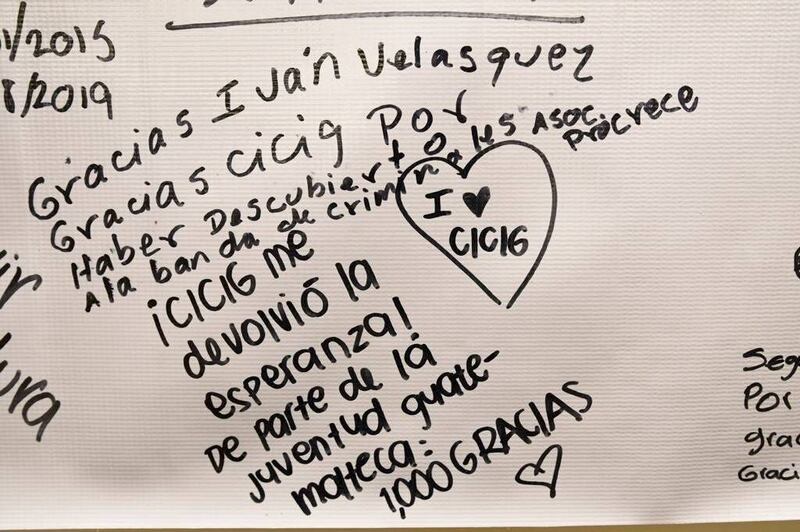 1/2015
8/2019
Gracias Iván Velasquez
Gracias cicig Por
Haber Descubierto
A la banda de criminales Asoc.
Procrece
I ♥
CICIG
¡CICIG me
devolvió la
esperanza!
De parte de la
juventud guate-
malteca:
1,000 GRACIAS
Por